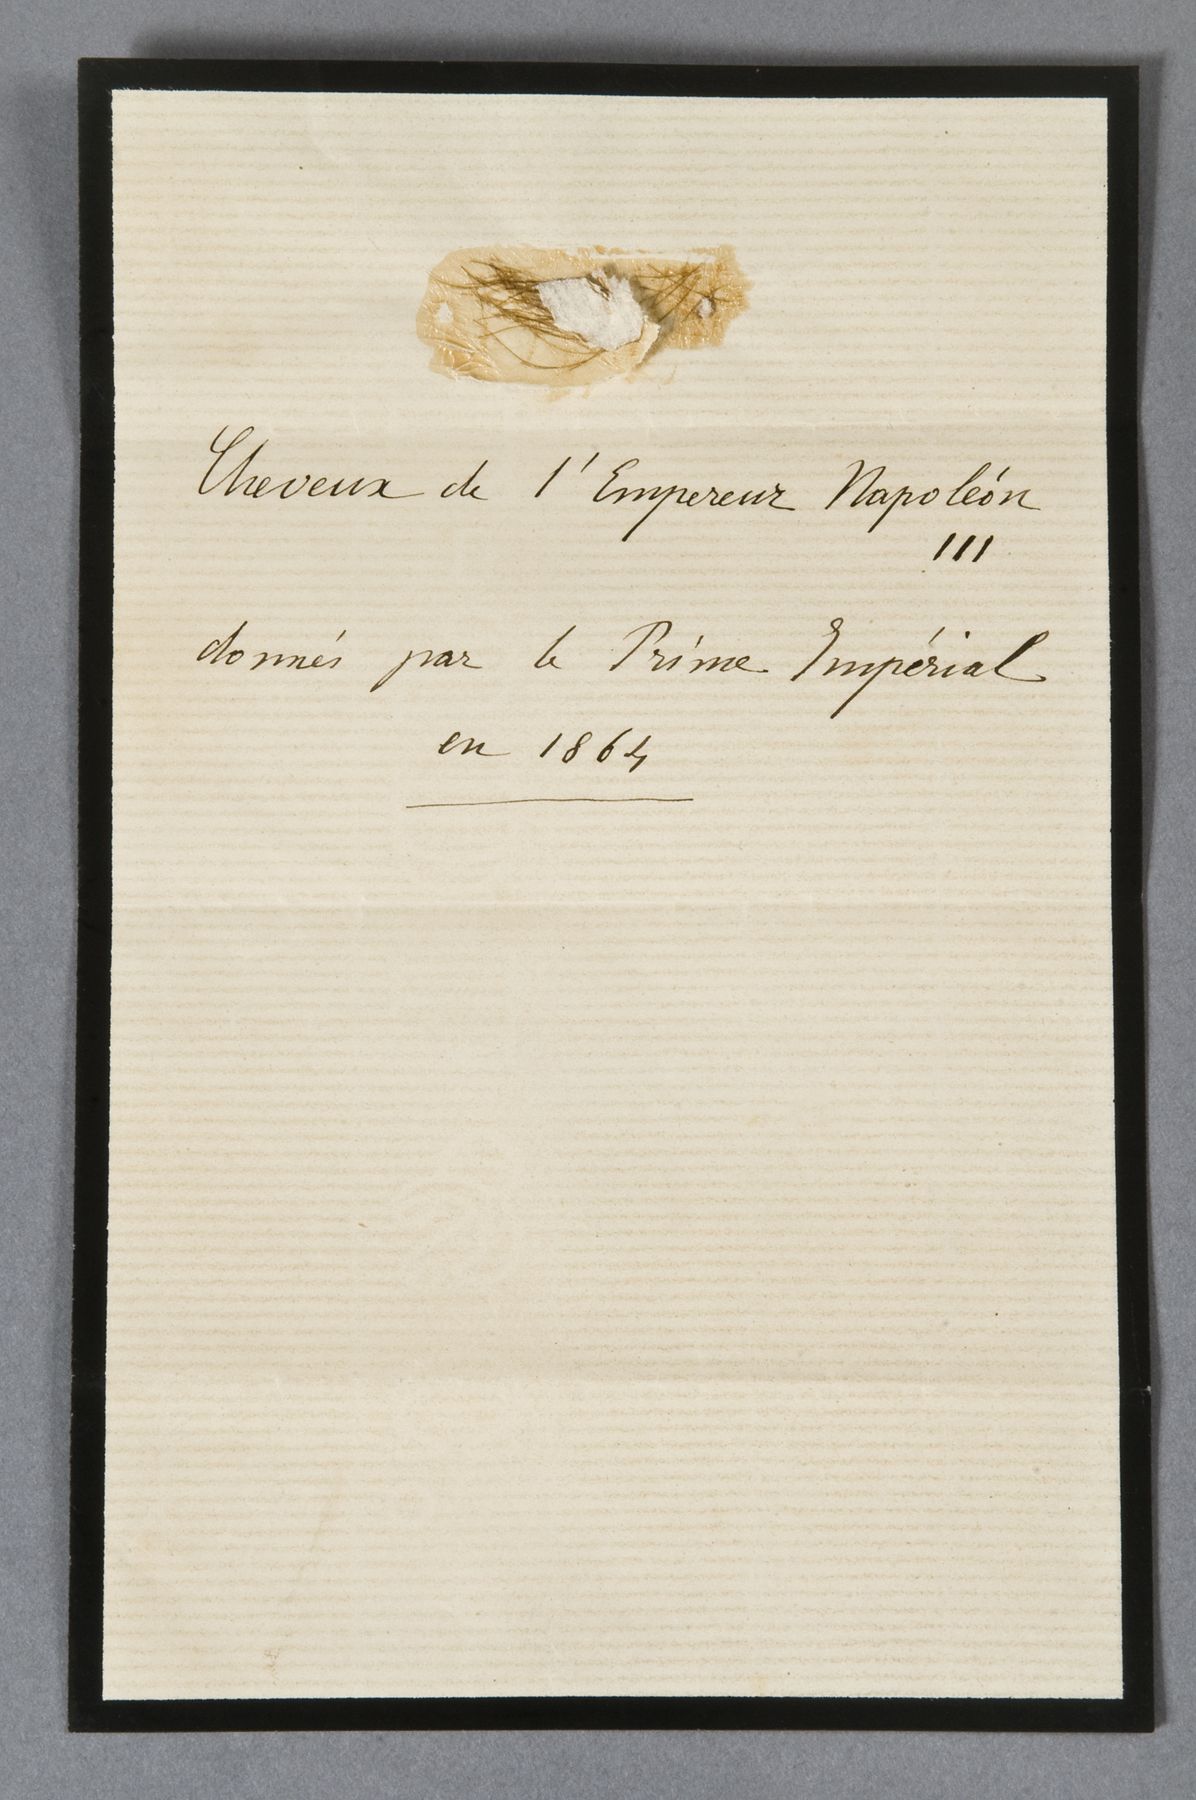 Cheveux de l'Empereur Napoléon
III
donnés par le Prince Impérial
en 1864